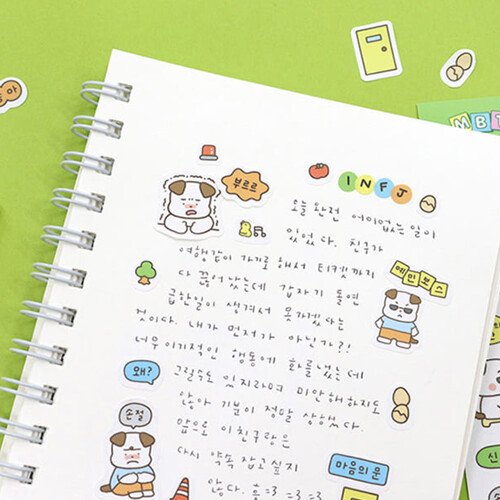 MBT
INFJ
부르르
오늘 완전 어이없는 일이
있었다. 친구가
여행같이 가기로 해서 티켓까지
다 끊어놨는데 갑자기 돌연
급한일이 생겨서 못가겠다는
것이다. 내가 먼저가 아닌가?!
너무 이기적인 행동에 화를냈는데
그럴수도 있지라며 미안해하지도
않아 기분이 정말 상했다.
앞으로 이친구랑은
다시 약속 잡고싶지
않다. 흥=3 =3 =3
예민보스
왜?
손절
마음의 문
신